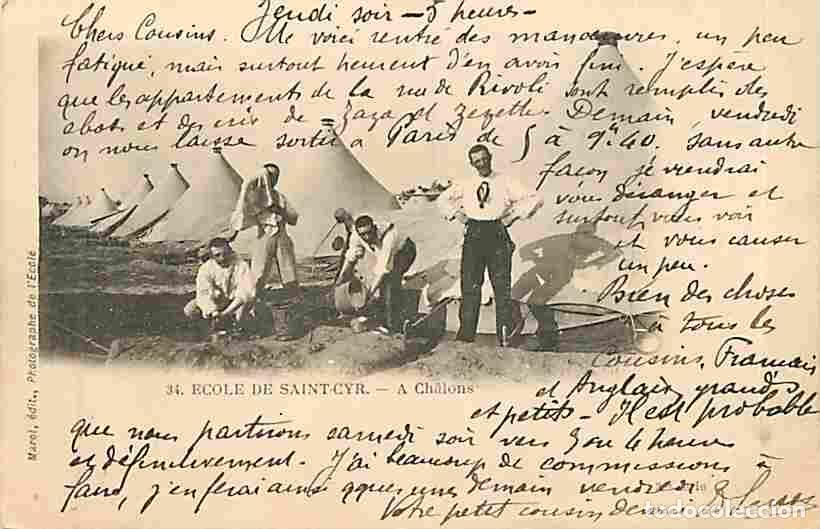 Jeudi soir - 5 heures -
Chers Cousins. Me voici rentré des manœuvres, un peu
fatigué, mais surtout heureux d'en avoir fini. J'espère
que les appartements de la rue de Rivoli sont remplis des
abois et des cris de Zaza et Zezette. Demain, vendredi
on nous laisse sortir à Paris de 5 à 9h.40. Sans autre
façon je viendrai
vous déranger et
surtout vous voir
et vous causer
un peu.
Bien des choses
à tous les
Cousins, Français
et Anglais, grands
et petits - Il est probable
que nous partirons samedi soir vers 3 ou 4 heures
et définitivement. J'ai beaucoup de commissions à
faire, j'en ferai ainsi quelques unes demain vendredi
Votre petit cousin
34. ECOLE DE SAINT-CYR. — A Châlons
Marol, édit., Photographe de l'Ecole
todocoleccion